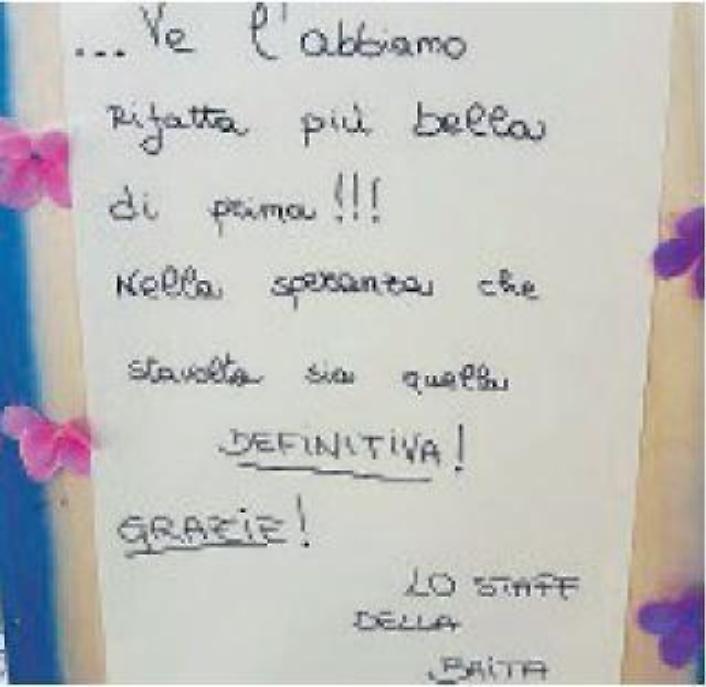 ...Ve l'abbiamo
Rifatta più bella
di prima!!!
Nella speranza che
stavolta sia quella
DEFINITIVA!
GRAZIE!
LO STAFF
DELLA
BAITA